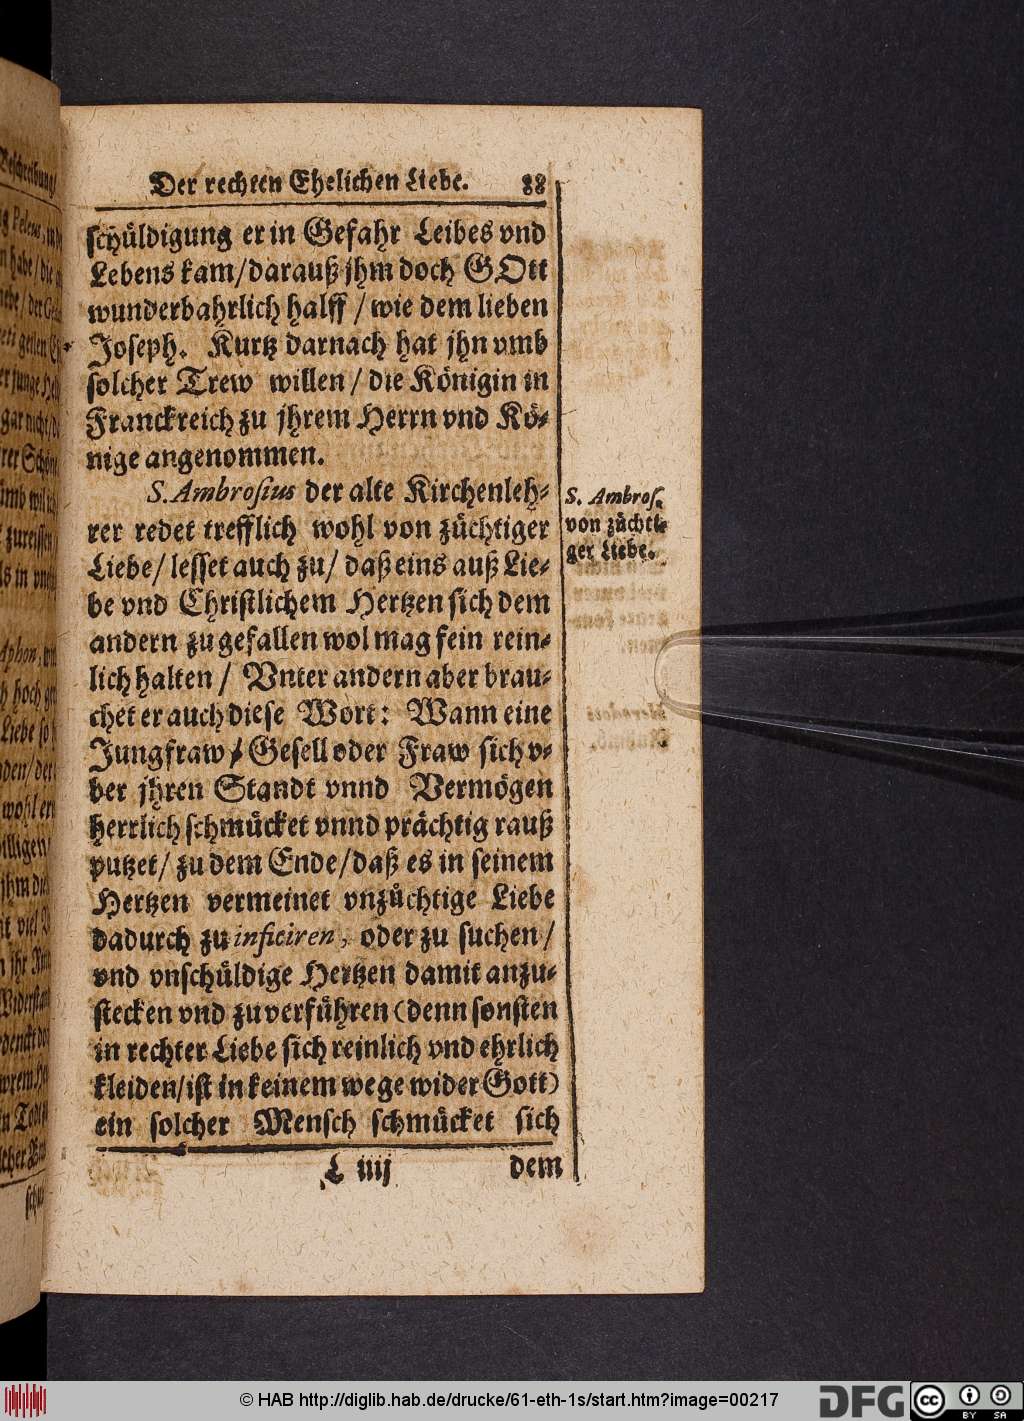 Der rechten Ehelichen Liebe. 88
schüldigung er in Gefahr Leibes vnd
Lebens kam/darauß jhm doch GOtt
wunderbahrlich halff / wie dem lieben
Joseph. Kurtz darnach hat jhn vmb
solcher Trew willen / die Königin in
Franckreich zu jhrem Herrn vnd Kö-
nige angenommen.
S. Ambrosius der alte Kirchenleh-
rer redet trefflich wohl von züchtiger
Liebe/ lesset auch zu/ daß eins auß Lie-
be vnd Christlichem Hertzen sich dem
andern zu gefallen wol mag fein rein-
lich halten / Vnter andern aber brau-
chet er auch diese Wort: Wann eine
Jungfraw / Gesell oder Fraw sich v-
ber jhren Standt vnnd Vermögen
herrlich schmücket vnnd prächtig rauß
putzet/ zu dem Ende/daß es in seinem
Hertzen vermeinet vnzüchtige Liebe
dadurch zu inficiren, oder zu suchen /
vnd vnschüldige Hertzen damit anzu-
stecken vnd zu verführen (denn sonsten
in rechter Liebe sich reinlich vnd ehrlich
kleiden/ist in keinem wege wider Gott)
ein solcher Mensch schmücket sich
L iiij dem
S. Ambros.
von züchti-
ger Liebe.
© HAB http://diglib.hab.de/drucke/61-eth-1s/start.htm?image=00217
DFG
cc BY SA